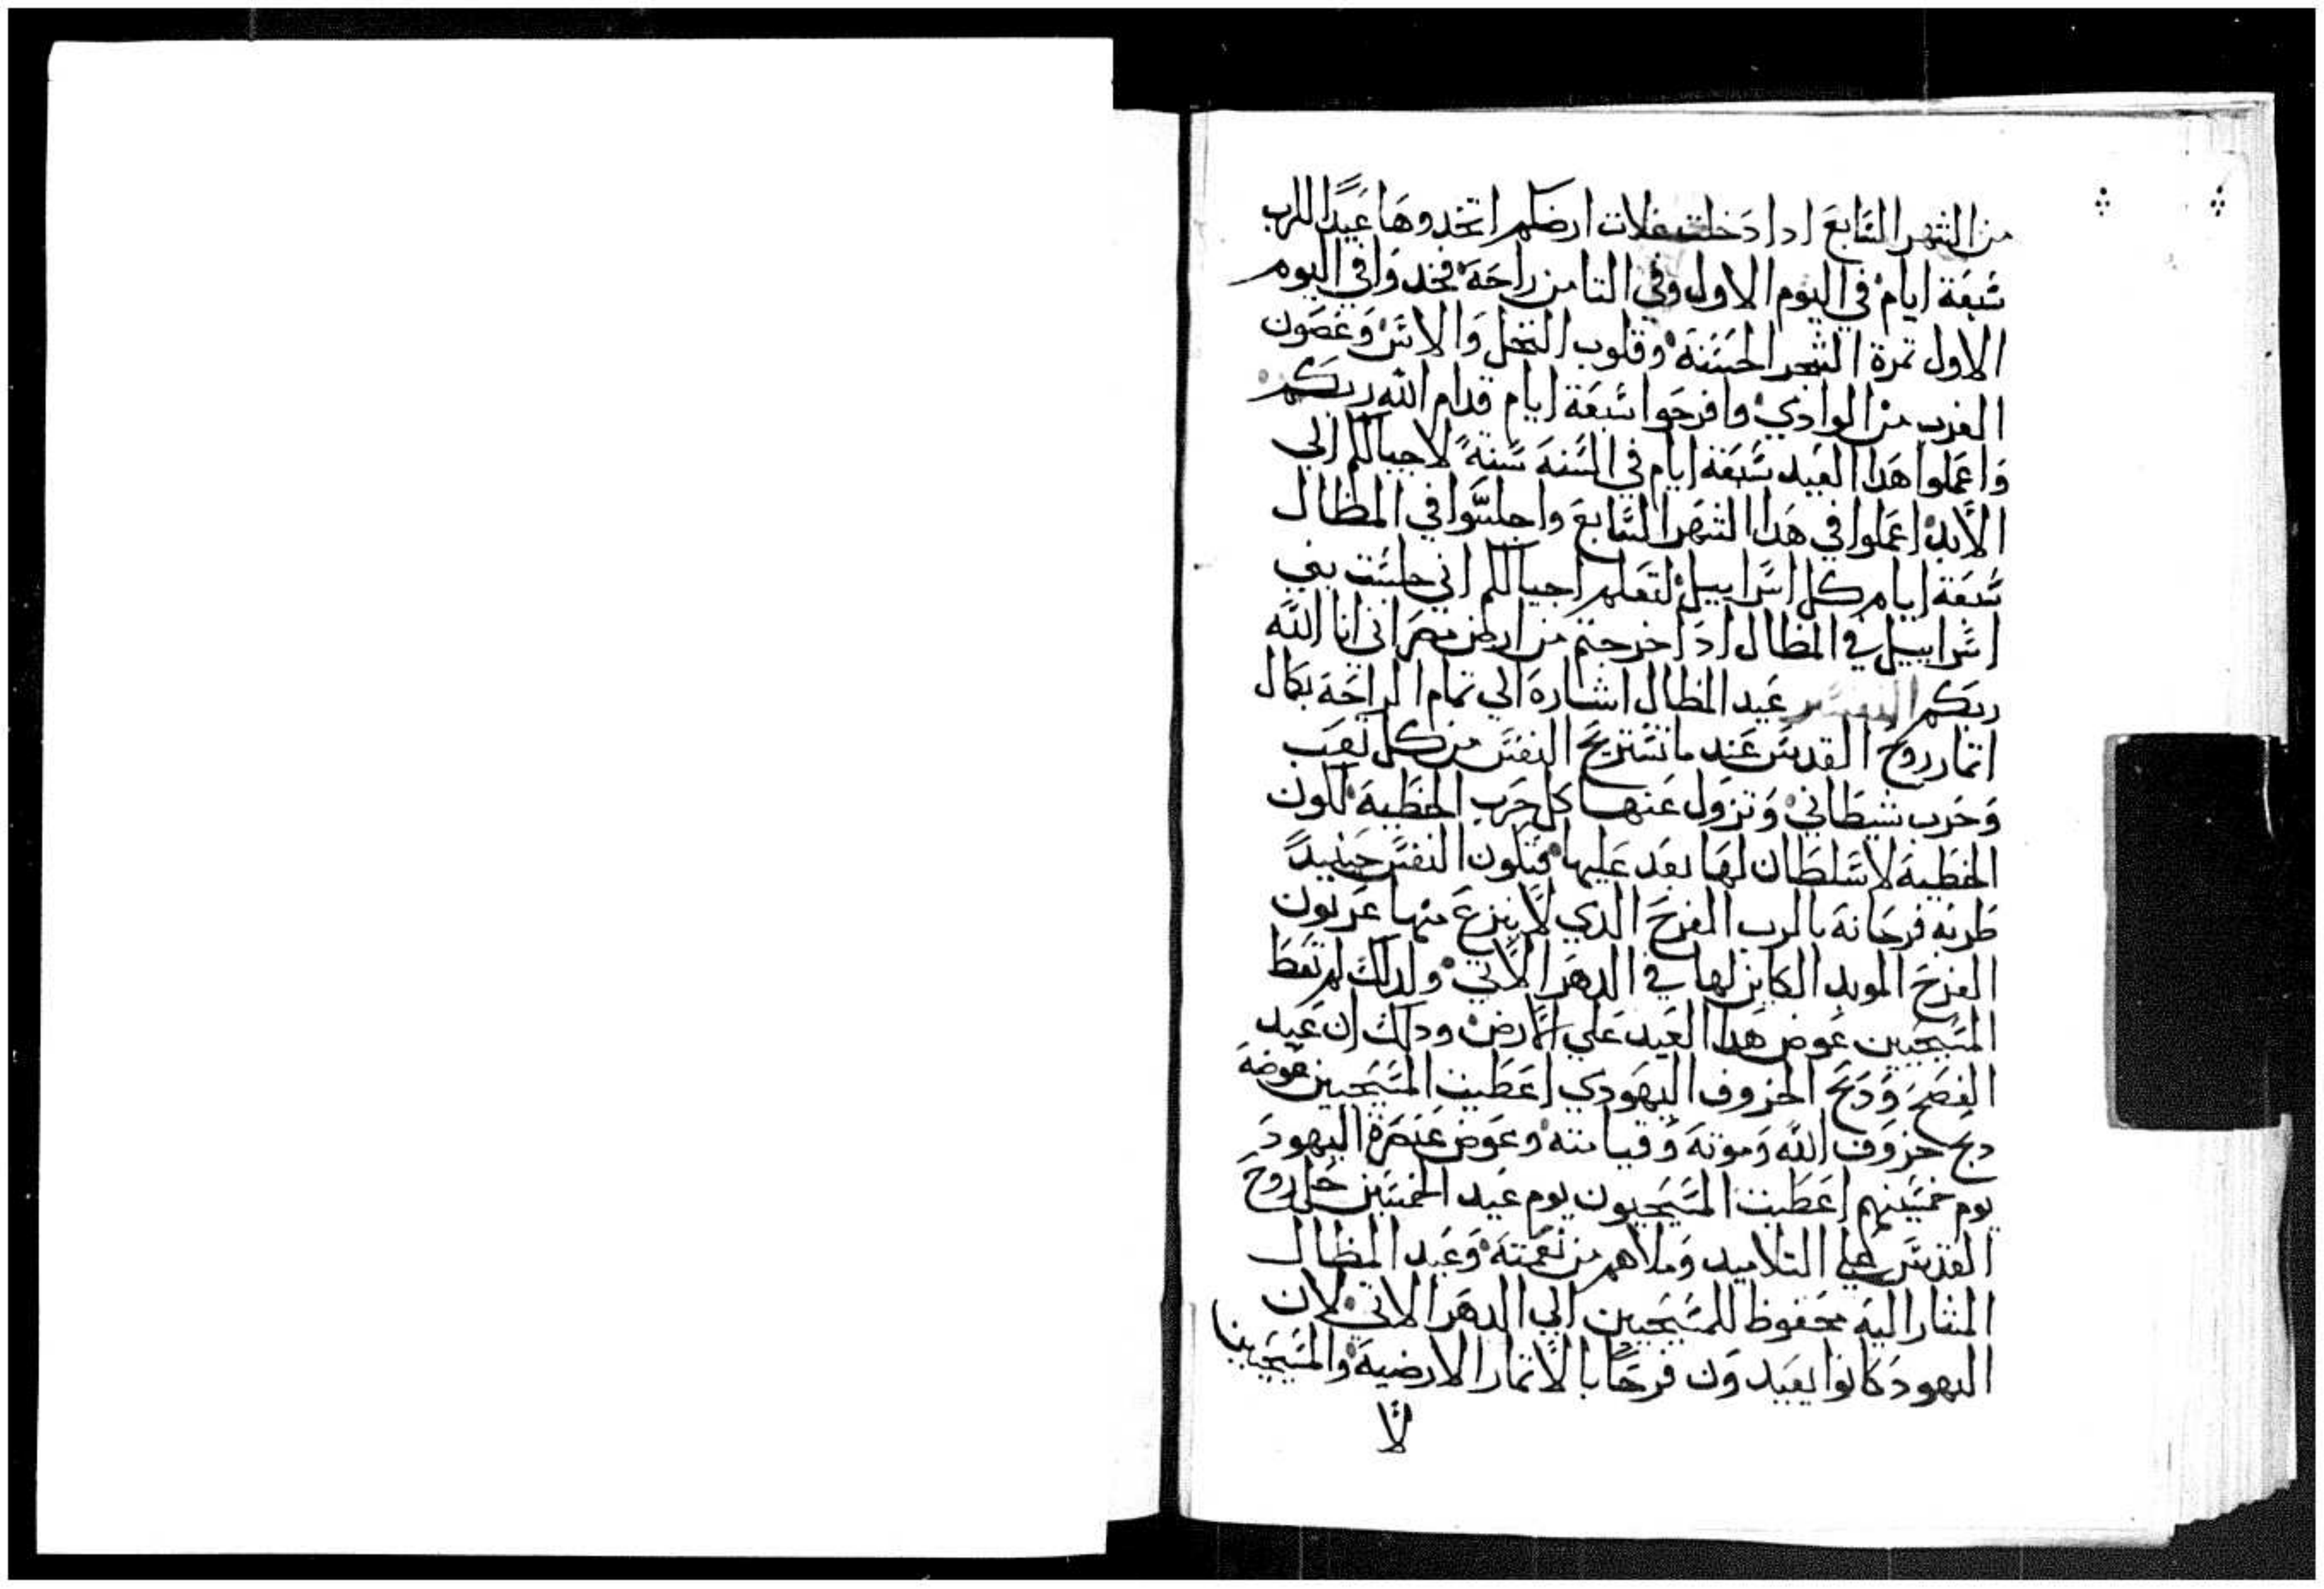 من الشهر السابع ادا دخلت غلات ارضكم اتخدوها عيدًا للرب
سبعة ايام في اليوم الاول وفي التامن راحة فخدوا في اليوم
الاول تمرة الشجر الحسنة وقلوب النخل والاس وغصون
الغرب من الوادي وافرحوا سبعة ايام قدام الله ربكم
واعملوا هدا العيد سبعة ايام في السنة سنةً لاجيالكم الي
الابد اعملوا في هدا الشهر السابع واجلسوا في المظال
سبعة ايام كل اسراييل لتعلم اجيالكم اني جلست بني
اسراييل في المظال ادا خرجتم من ارض مصر اني انا الله
ربكم التفسير عيد المظال اشارة الي تمام الراحة بكمال
اتمار روح القدس عند ما تستريح النفس من كل تعب
وحرب شيطاني وتزول عنها كل حرب الخطية لكون
الخطية لا سلطان لها بعد عليها فتكون النفس حينيدً
طربه فرحانة بالرب الفرح الدي لا ينزع منها عربون
الفرح الموبد الكاين لها في الدهر الاتي ولدلك لم تعط
المسيحيين عوض هدا العيد علي الارض ودلك ان عيد
الفصح ودبح الخروف اليهودي اعطيت المسيحيين عوضه
دبح خروف الله وموته وقيامته وعوض عنصرة اليهود
يوم خمسينهم اعطيت المسيحيون يوم عيد الخمسين حل روح
القدس علي التلاميد وملاهم من نعمته وعيد المظال
المشار اليه محفوظ للمسيحيين الي الدهر الاتي لان
اليهود كانوا يعيدون فرحًا بالاتمار الارضية والمسيحيين
لا